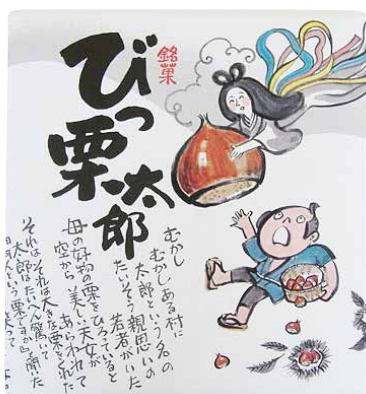 銘菓
びっ栗
太郎
むかし
むかしある村に
太郎という名の
たいそう親思いの
若者がいた
母の好物の栗をひろっていると
空から美しい天女が
あらわれて
それはそれは大きな栗をくれた
太郎はたいへん驚いて